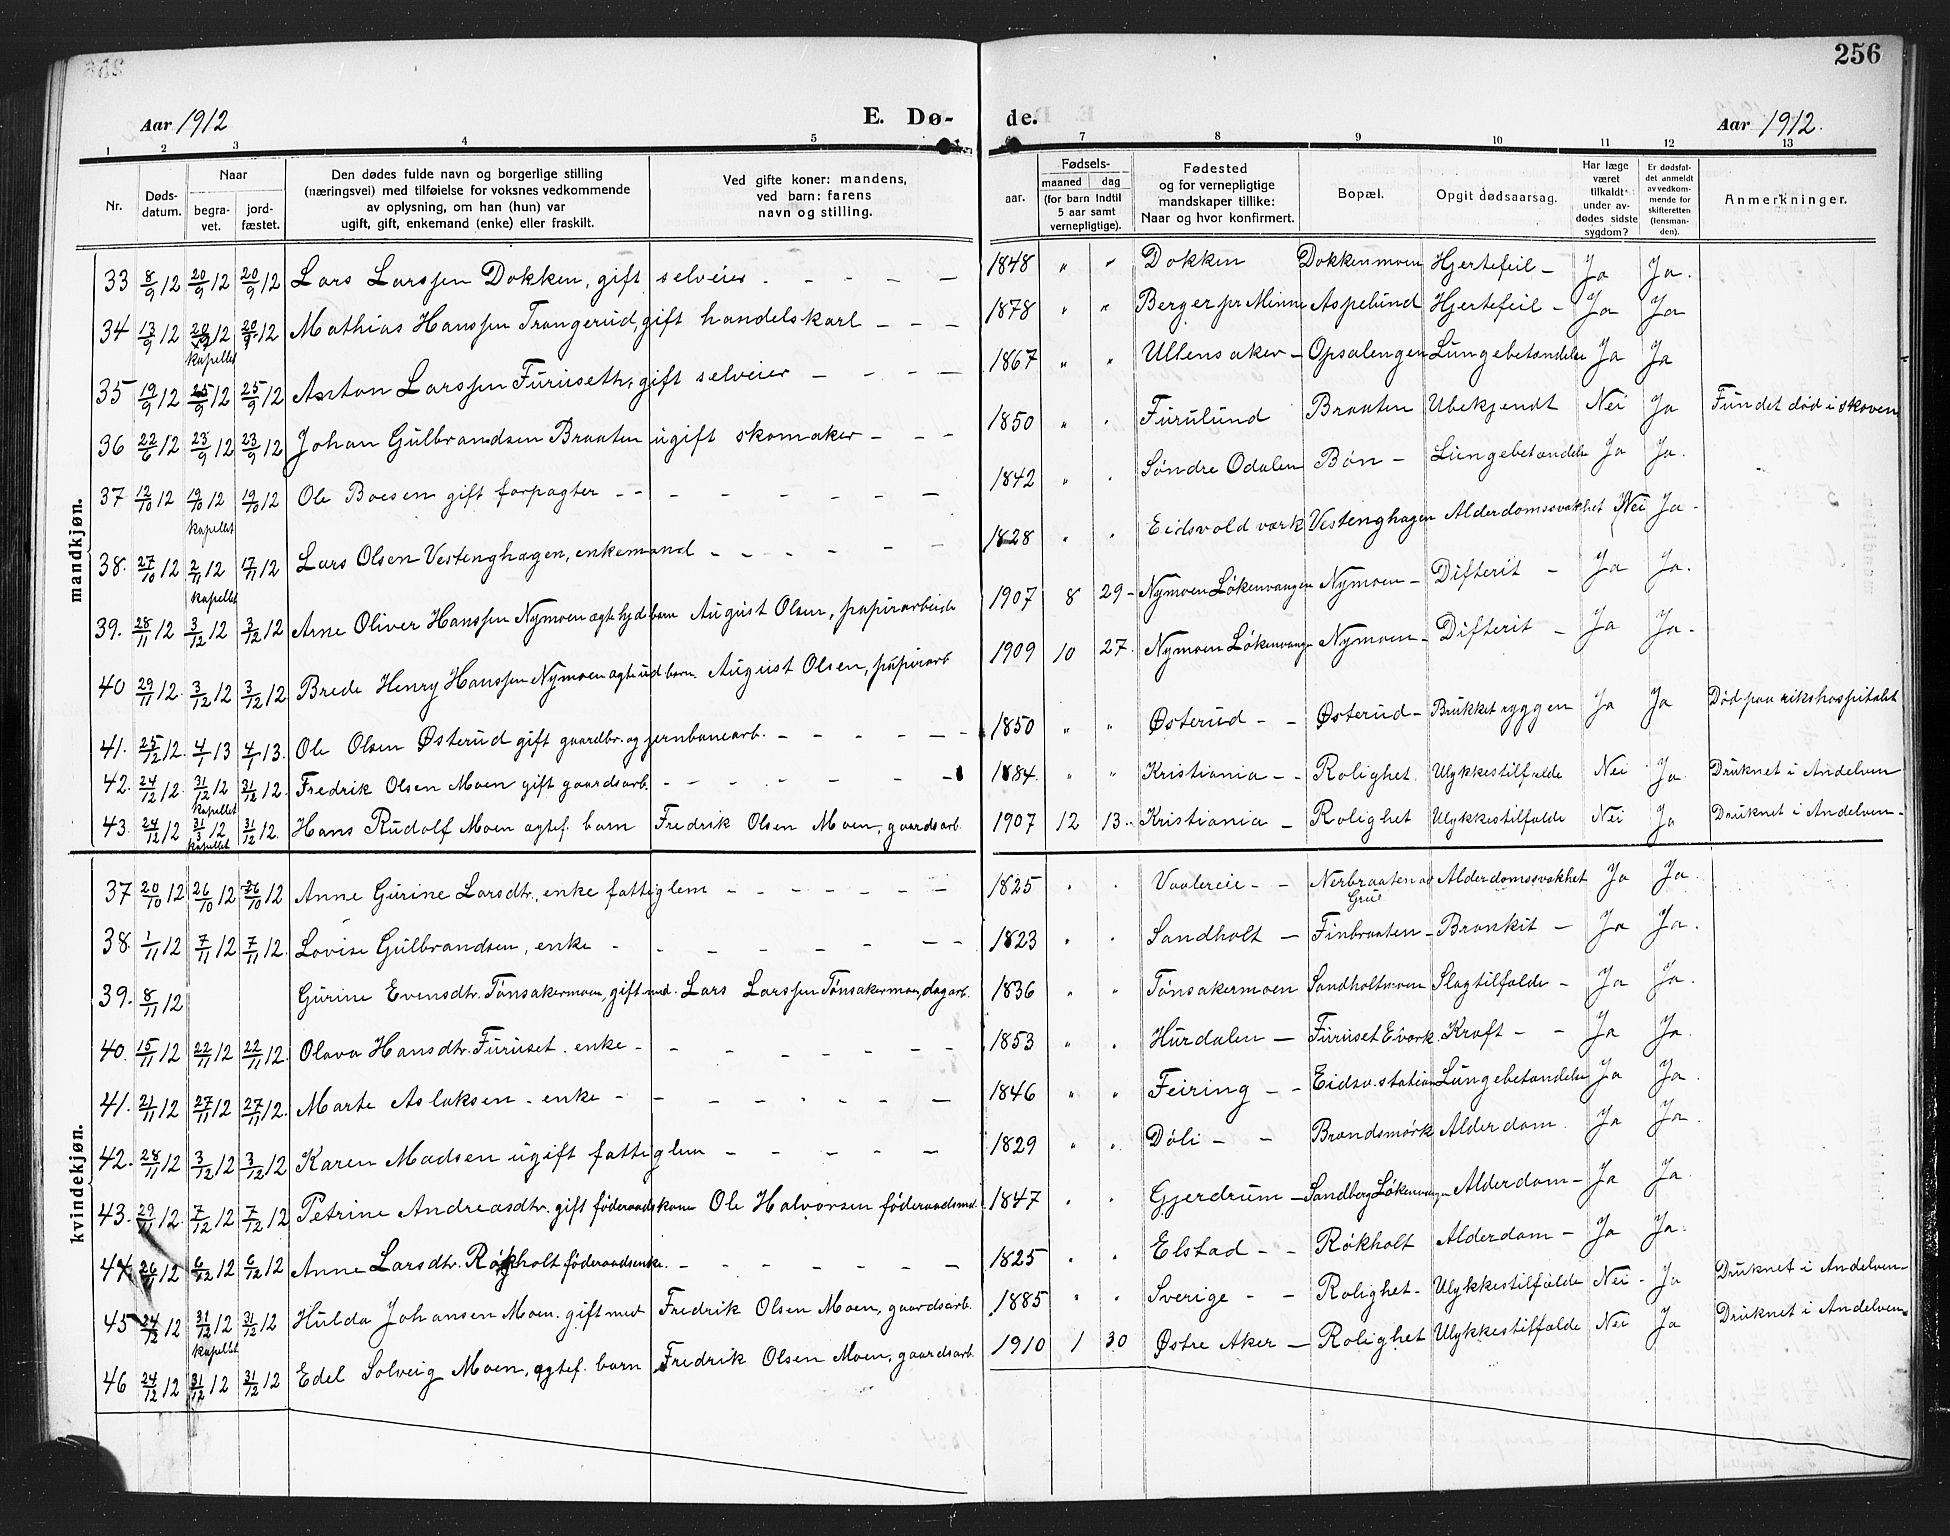 256
Aar 1912
E. Dø-
de.
Aar 1912.
1 2 3 4 5 6 7 8 9 10 11 12 13
Nr.
Døds-
datum.
Naar
begra-
vet.
jord-
fæstet.
Den dødes fulde navn og borgerlige stilling
(næringsvei) med tilføielse for voksnes vedkommende
av oplysning, om han (hun) var
ugift, gift, enkemand (enke) eller fraskilt.
Ved gifte koner: mandens,
ved barn: farens
navn og stilling.
aar.
Fødsels-
maaned dag
(for barn indtil
5 aar samt
vernepligtige).
Fødested
og for vernepligtige
mandskaper tillike:
Naar og hvor konfirmert.
Bopæl.
Opgit dødsaarsag.
Har læge
været
tilkaldt
under av-
dødes sidste
sygdom?
Er dødsfal-
det anmeldt
av vedkom-
mende for
skifteretten
(lensman-
den).
Anmerkninger.
mandkjøn.
33 8/9 12 20/9 12 20/9 12 Lars Larssen Dokken, gift selveier - - - - 1848 " " Dokken Dokkenmoen Hjertefeil - Ja Ja.
34 13/9 12 20/9 12 kapellet 20/9 12 Mathias Hanssen Trangerud, gift handelskarl - - - 1878 " " Berger pr Minne Aspelund Hjertefeil - Ja Ja
35 19/9 12 25/9 12 25/9 12 Anton Larssen Furuseth, gift selveier - - - - 1867 " " Ullensaker - Opsalengen Lungebetændelse Ja Ja
36 22/6 12 23/9 12 23/9 12 Johan Gulbrandsen Braaten ugift skomaker - - - 1850 " " Furulund Braaten Ubekjendt Nei Ja Fundet død i skoven
37 12/10 12 19/10 12 kapellet 19/10 12 Ole Boesen gift forpagter - - - - - - - - 1842 " " Søndre Odalen Bøn - Lungebetændelse Ja Ja.
38. 27/10 12 2/11 12 kapellet 17/11 12 Lars Olsen Vestenghagen, enkemand - - - - - - 1828 " " Eidsvold værk Vestenghagen Alderdomssvakhet Nei Ja -
39. 28/11 12 3/12 12 3/12 12 Arne Oliver Hanssen Nymoen ægtefød barn August Olsen, papirarbeide 1907 8 29 - Nymoen Løkenvangen Nymoen - Difterit - Ja Ja.
40 29/11 12. 3/12 12 3/12 12 Brede Henry Hanssen Nymoen August Olsen, papirarb 1909 10 27. Nymoen Løkenvangen Nymoen - Difterit - Ja Ja -
41. 25/12 12. 4/1 13 4/1 13. Ole Olsen Østerud gift gaardbr. og jernbanearb. - - - - - 1850 " " Østerud - - Østerud - Brukket ryggen Ja Ja Død paa rikshospitalet
42. 24/12 12. 31/12 12 kapellet 31/12 12. Fredrik Olsen Moen gift gaardsarb. - - - - - - 1884. " " Kristiania - - Rolighet. Ulykkestilfælde Nei Ja. Druknet i Andelven
43. 24/12 12 31/12 12 kapellet 31/12 12. Hans Rudolf Moen ægtef. barn Fredrik Olsen Moen, gaardsarb. 1907 12 13. Kristiania - Rolighet Ulykkestilfælde Nei Ja Druknet i Andelven -
kvindekjøn.
37 20/10 12 26/10 12 26/10 12 Anne Gurine Larsdtr., enke fattiglem - - - - - - 1825 " " Vaalereie - - Nerbraaten Grue Alderdomssvakhet Ja Ja.
38. 1/11 12 7/11 12 7/11 12. Lovise Gulbrandsen, enke - - - - - - - 1823 " " Sandholt - Finbraaten - Bronkit - Ja Ja.
39. 8/11 12 Gurine Evensdtr. Tønsakermoen, gift med. Lars Larssen Tønsakermoen, dagarb. 1836 " " Tønsakermoen Sandholtmoen Slagtilfælde - Ja Ja.
40. 15/11 12 22/11 12 22/11 12. Olava Hansdtr. Furuset. enke - - - - - - - 1853 " " Hurdalen - Furuset E værk. Kræft - - Ja Ja.
41. 21/11 12 27/11 12 27/11 12. Marte Aslaksen - enke - - - - - - - 1846 " " Feiring - - Eidsv. station Lungebetændelse Ja Ja.
42. 28/11 12 3/12 12 3/12 12 Karen Madsen ugift fattiglem - - - - - 1829 " " Døli - - Brandsmørk Alderdom. Ja Ja.
43. 29/11 12. 7/12 12 7/12 12 Petrine Andreasdtr. gift føderaadskone Ole Halvorsen føderaadsmd. 1847 " " Gjerdrum - Sandberg Løkenvangen Alderdom - Ja Ja.
44. 26/11 12 6/12 12 6/12 12 Anne Larsdtr. Røkholt føderaadsenke. - - - - - - 1825 " " Elstad - - Røkholt Alderdom - Ja Ja.
45 24/12 12 31/12 12 kapellet 31/12 12 Hulda Johansen Moen. gift med Fredrik Olsen Moen, gaardsarb. 1885 " " Sverige - - Rolighet - Ulykkestilfælde Nei - Ja Druknet i Andelven -
46 24/12 12 31/12 12 31/12 12 Edel Solveig Moen, ægtef. barn Fredrik Olsen Moen, gaardsarb. 1910 1 30 Østre Aker - Rolighet Ulykkestilfælde Nei Ja Druknet i Andelven.